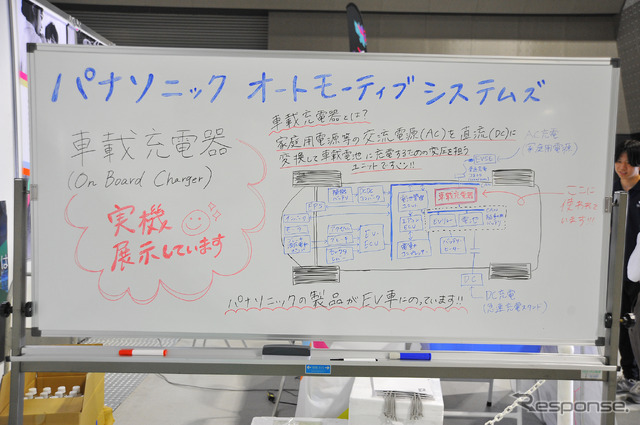 パナソニック オートモーティブシステムズ
車載充電器
(On Board Charger)
実機
展示しています
車載充電器とは?
家庭用電源等の交流電源(AC)を直流(DC)に
変換して車載電池に充電するための変圧を担う
ユニットですっ!!
AC充電
(家庭用電源)
EVSE
車載充電器
ここに
使われて
います!!
EPS
EV-
ECU
DC
DC充電
(急速充電スタンド)
パナソニックの製品がEV車にのっています!!
Response.